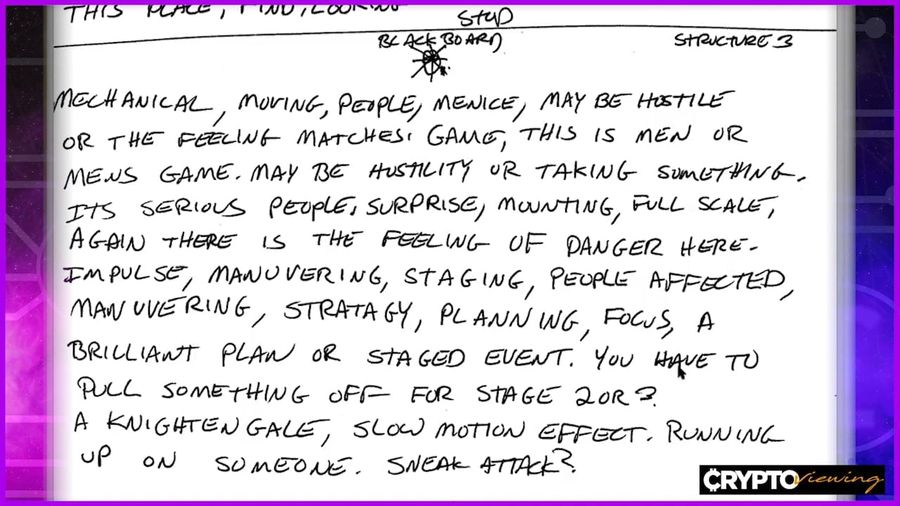 THIS PLACE, FIND, LOOKING
STOP
BLACKBOARD
STRUCTURE 3
MECHANICAL, MOVING, PEOPLE, MENICE, MAY BE HOSTILE
OR THE FEELING MATCHES. GAME, THIS IS MEN OR
MENS GAME. MAY BE HOSTILITY OR TAKING SOMETHING.
ITS SERIOUS PEOPLE, SURPRISE, MOUNTING, FULL SCALE,
AGAIN THERE IS THE FEELING OF DANGER HERE.
IMPULSE, MANUVERING, STAGING, PEOPLE AFFECTED,
MANUVERING, STRATAGY, PLANNING, FOCUS, A
BRILLIANT PLAN OR STAGED EVENT. YOU HAVE TO
PULL SOMETHING OFF FOR STAGE 2 OR 3.
A KNIGHTENGALE, SLOW MOTION EFFECT. RUNNING
UP ON SOMEONE. SNEAK ATTACK?
CRYPTO Viewing